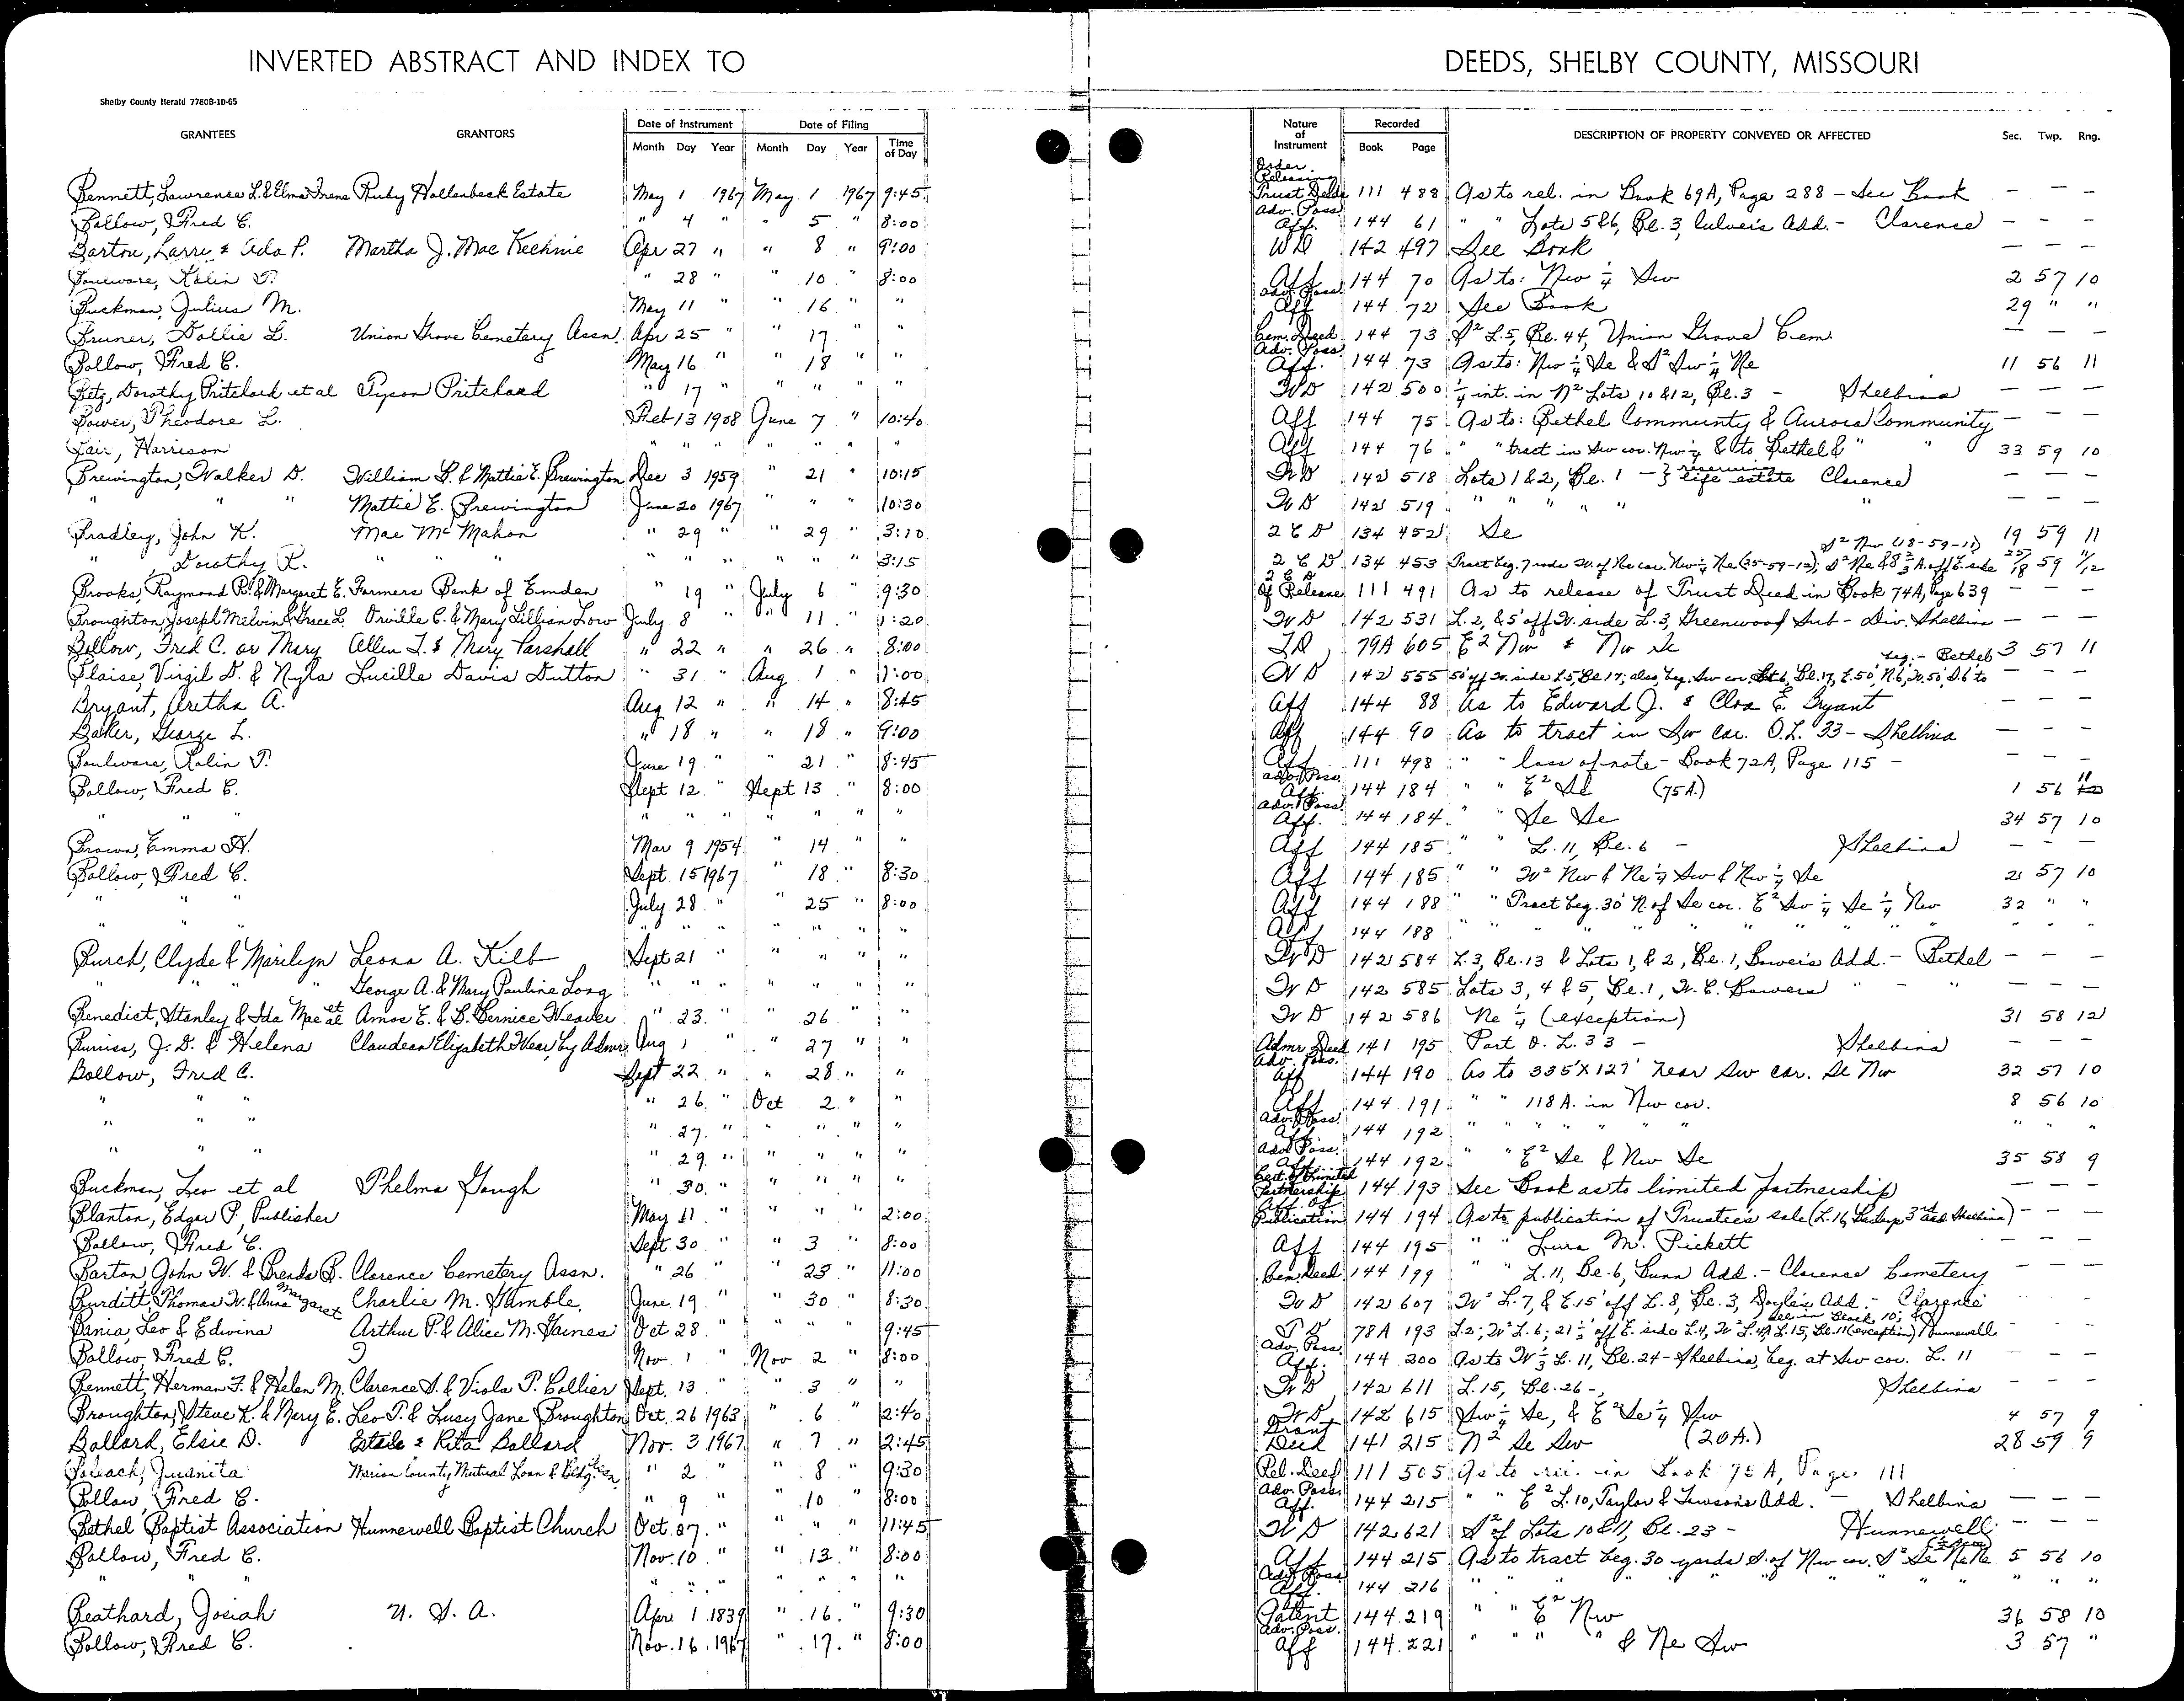 INVERTED ABSTRACT AND INDEX TO DEEDS, SHELBY COUNTY, MISSOURI
Shelby County Herald 7780B-10-65
GRANTEES GRANTORS Date of Instrument Month Day Year Date of Filing Month Day Year Time of Day Nature of Instrument Recorded Book Page DESCRIPTION OF PROPERTY CONVEYED OR AFFECTED Sec. Twp. Rng.
Bennett, Lawrence L. & Elma Irene Ruby Hollenbeck Estate May 1 1967 May 1 1967 9:45 Order Releasing Trust Deeds 111 488 As to rel. in Book 69A, Page 288 - See Book — — —
Bollow, Fred C. " 4 " 5 " 8:00 Adv. Poss. Aff. 144 61 " " Lots 5&6, Bl. 3, Culver's Add. - Clarence — — —
Barton, Larry & Ada P. Martha J. Mac Kechnie Apr 27 " " 8 " 9:00 WD 142 497 See Book — — —
Boulware, Rolin T. " 28 " " 10 " 8:00 Aff 144 70 As to: Nw ¼ Sw 2 57 10
Buckman, Julius M. May 11 " " 16 " " Adv. Poss. Aff 144 72 See Book 29 " "
Bruner, Dollie L. Union Grove Cemetery Assn. Apr 25 " " 17 " " Cem. Deed 144 73 S² L.5, Bl. 44, Union Grove Cem. — — —
Bollow, Fred C. May 16 " " 18 " " Adv. Poss. Aff. 144 73 As to: Nw ¼ Se & S² Sw ¼ Ne 11 56 11
Betz, Dorothy Pritchard et al Tyson Pritchard " 17 " " " " " W D 142 500 ¼ int. in N² Lots 10 & 12, Bl. 3 - Shelbina — — —
Bower, Theodore L. Feb 13 1908 June 7 " 10:40 Aff 144 75 As to: Bethel Community & Aurora Community — — —
Bair, Harrison " " " " " " " Aff 144 76 " " tract in Sw cor. Nw ¼ & to Bethel & " " 33 59 10
Brewington, Walker D. William B. & Mattie E. Brewington Dec 3 1959 " 21 " 10:15 W D 142 518 Lots 1 & 2, Bl. 1 - } reserving life estate Clarence — — —
" " " Mattie E. Brewington June 20 1967 " " " 10:30 W D 142 519 " " " " " — — —
Bradley, John K. Mae McMahon " 29 " " 29 " 3:10 2 C D 134 452 Se 19 59 11
" , Dorothy R. " " " " " " " " " 3:15 2 C D 134 453 Tract beg. 7 rods W. of Ne cor. Nw ¼ Ne (25-59-12); S² Nw (18-59-11) S² Ne & 8⅔ A. off E. side 25/18 59 11/12
Brooks, Raymond R. & Margaret E. Farmers Bank of Emden " 19 " July 6 " 9:30 Of Release 111 491 As to release of Trust Deed in Book 74A, Page 639 — — —
Broughton, Joseph Melvin & Grace L. Orville C. & Mary Lillian Low July 8 " " 11 " 1:20 W D 142 531 L. 2, & 5' off W. side L. 3, Greenwood Sub - Div. Shelbina — — —
Bollow, Fred C. or Mary Allen T. & Mary Parshall " 22 " " 26 " 8:00 T D 79A 605 E² Nw & Nw Se 3 57 11
Blaise, Virgil D. & Nyla Lucille Davis Dutton " 31 " Aug 1 " 1:00 W D 142 555 50' off W. side L.5, Bl 17; also, beg. Sw cor. Lot 6, Bl. 17, E. 50', N. 6', W. 50', S. 6' to beg. - Bethel — — —
Bryant, Aretha A. Aug 12 " " 14 " 8:45 Aff 144 88 As to Edward J. & Cloa E. Bryant — — —
Baker, George L. " 18 " " 18 " 9:00 Aff 144 90 As to tract in Sw cor. O.L. 33 - Shelbina — — —
Boulware, Rolin T. June 19 " " 21 " 8:45 Aff 111 498 " " loss of note - Book 72A, Page 115 - — —
Bollow, Fred C. Sept 12 " Sept 13 " 8:00 Adv. Poss. Aff. 144 184 " " E² Se (75A.) 1 56 11
" " " " " " " " " " Adv. Poss. Aff. 144 184 " " Se Se 34 57 10
Brown, Emma H. Mar 9 1954 " 14 " " Aff 144 185 " " L. 11, Bl. 6 - Shelbina — — —
Bollow, Fred C. Sept. 15 1967 " 18 " 8:30 Aff 144 185 " " W² Nw & Ne ¼ Sw & Nw ¼ Se 21 57 10
" " " July 28 " " 25 " 8:00 Aff 144 188 " " Tract beg. 30' N. of Se cor. E² Sw ¼ Se ¼ Nw 32 " "
" " " " " " " Aff 144 188 " " " " " " " " " "
Burch, Clyde & Marilyn Leona A. Kilb Sept 21 " " " " " W D 142 584 L. 3, Bl. 13 & Lots 1, & 2, Bl. 1, Bower's Add. - Bethel — — —
" " " George A. & Mary Pauline Long " " " " " " " W D 142 585 Lots 3, 4 & 5, Bl. 1, W. C. Bowers " - " — — —
Benedict, Stanley & Ida Mae et al Amos E. & B. Bernice Weaver " 23 " " 26 " " W D 142 586 Ne ¼ (exception) 31 58 12
Burriss, J. D. & Helena Claudean Elizabeth Wear, by Admr Aug 1 " " 27 " " Admr Deed 141 195 Part O. L. 33 - Shelbina — — —
Bollow, Fred C. Sept 22 " " 28 " " Adv. Poss. Aff 144 190 As to 335' X 127' near Sw cor. Se Nw 32 57 10
" " " " 26 " Oct 2 " " Aff 144 191 " " 118 A. in Nw cor. 8 56 10
" " " " 27 " " " " " Adv. Poss. Aff 144 192 " " " " " " " " "
" " " " 29 " " " " " Adv. Poss. Aff. 144 192 " " E² Se & Nw Se 35 58 9
Buckman, Leo et al Thelma Gough " 30 " " " " " Cert. of Limited Partnership 144 193 See Book as to limited partnership — — —
Blanton, Edgar P., Publisher May 11 " " " " 2:00 Aff. Of Publication 144 194 As to publication of Trustee's sale (L. 16, 3rd Add. Shelbina) — — —
Bollow, Fred C. Sept. 30 " " 3 " 8:00 Aff 144 195 " " Lura M. Pickett — — —
Barton, John W. & Brenda B. Clarence Cemetery Assn. " 26 " " 23 " 11:00 Cem. Deed 144 199 " " L. 11, Bl. 6, Bunn Add. - Clarence Cemetery — — —
Burditt, Thomas W. & Anna Margaret Charlie M. Gamble June 19 " " 30 " 8:30 W D 142 607 W² L. 7, & E. 15' off L. 8, Bl. 3, Doyle's Add. - Clarence — — —
Bania, Leo & Edwina Arthur P. & Alice M. Gaines Oct. 28 " " " " 9:45 T D 78A 193 L. 2; W² L. 6; 21½' off E. side L. 4, W² L. 4, all in Block 10; & L. 15, Bl. 11 (exception) Hunnewell — — —
Bollow, Fred C. Nov. 1 " Nov 2 " 8:00 Adv. Poss. Aff. 144 200 As to W ⅓ L. 11, Bl. 24 - Shelbina, beg. at Sw cor. L. 11 — — —
Bennett, Herman F. & Helen M. Clarence S. & Viola P. Collier Sept. 13 " " 3 " " W D 142 611 L. 15, Bl. 26 - Shelbina — — —
Broughton, Steve K. & Mary E. Leo T. & Lucy Jane Broughton Oct. 26 1963 " 6 " 2:40 W D 142 615 Sw ¼ Se, & E² Se ¼ Sw 4 57 9
Ballard, Elsie D. Estile & Rita Ballard Nov. 3 1967 " 7 " 2:45 Grant Deed 141 215 N² Se Sw (20A.) 28 59 9
Juanita Marion County Mutual Loan & Bldg " 2 " " 8 " 9:30 Rel. Deed 111 505 As to rel. in Book 75A, Page 111
Bollow, Fred C. " 9 " " 10 " 8:00 Adv. Poss. Aff. 144 215 " " E² L. 10, Taylor & Lawson's Add. - Shelbina — — —
Bethel Baptist Association Hunnewell Baptist Church Oct. 27 " " " " 11:45 W D 142 621 S² of Lots 10 & 11, Bl. 23 - Hunnewell — — —
Bollow, Fred C. Nov. 10 " " 13 " 8:00 Aff 144 215 As to tract beg. 30 yards S. of Nw cor. S² Se Ne Ne 5 56 10
" " " " " " " " " Adv. Poss. Aff. 144 216 " " " " " " " " " " "
Beathard, Josiah U. S. A. Apr 1 1839 " 16 " 9:30 Patent 144 219 " " E² Nw 36 58 10
Bollow, Fred C. Nov. 16 1967 " 17 " 8:00 Adv. Poss. Aff 144 221 " " " " & Ne Sw 3 57 "